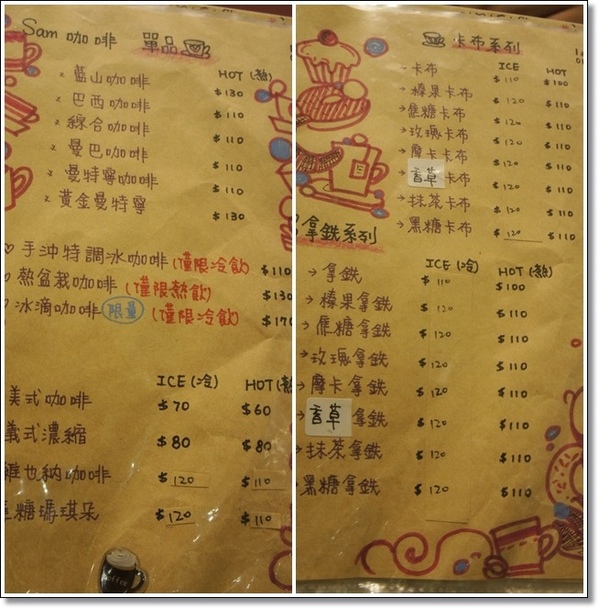 Sam 咖啡 單品
HOT (熱)
藍山咖啡 $130
巴西咖啡 $110
綜合咖啡 $110
曼巴咖啡 $110
曼特寧咖啡 $110
黃金曼特寧 $130
手沖特調冰咖啡(僅限冷飲) $110
熱盆栽咖啡(僅限熱飲) $130
冰滴咖啡 限量 (僅限冷飲) $170
ICE(冷) HOT(熱
美式咖啡 $70 $60
義式濃縮 $80 $80
維也納咖啡 $120 $110
焦糖瑪琪朵 $120 $110
Coffee
卡布系列
ICE HOT
卡布 $110 $100
榛果卡布 $120 $110
焦糖卡布 $120 $110
玫瑰卡布 $120 $110
摩卡卡布 $120 $110
香草卡布 $120 $110
抹茶卡布 $120 $110
黑糖卡布 $120 $110
拿鉄系列
ICE(冷) HOT(熱)
拿鉄 $110 $100
榛果拿鉄 $120 $110
焦糖拿鉄 $120 $110
玫瑰拿鉄 $120 $110
摩卡拿鉄 $120 $110
香草拿鉄 $120 $110
抹茶拿鉄 $120 $110
黑糖拿鉄 $120 $110